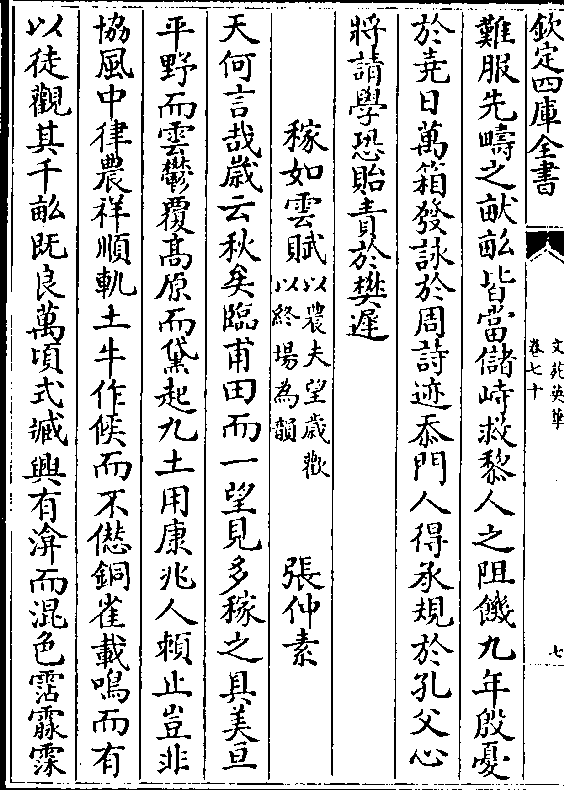 欽定四庫全書
文苑英華
卷七十
七
難服先疇之畎畝皆當儲峙救黎人之阻饑九年殷憂
於堯日萬箱發詠於周詩迹忝門人得承規於孔父心
將請學恐貽責於樊遲
稼如雲賦以農夫望歲歡
以終場為韻
張仲素
天何言哉歲云秋矣臨甫田而一望見多稼之具美亘
平野而雲鬱覆髙原而黛起九土用康兆人頼止豈非
協風中律農祥順軌土牛作候而不愆銅雀載鳴而有
以徒觀其千畝既良萬頃式臧興有渰而混色霑霢霂